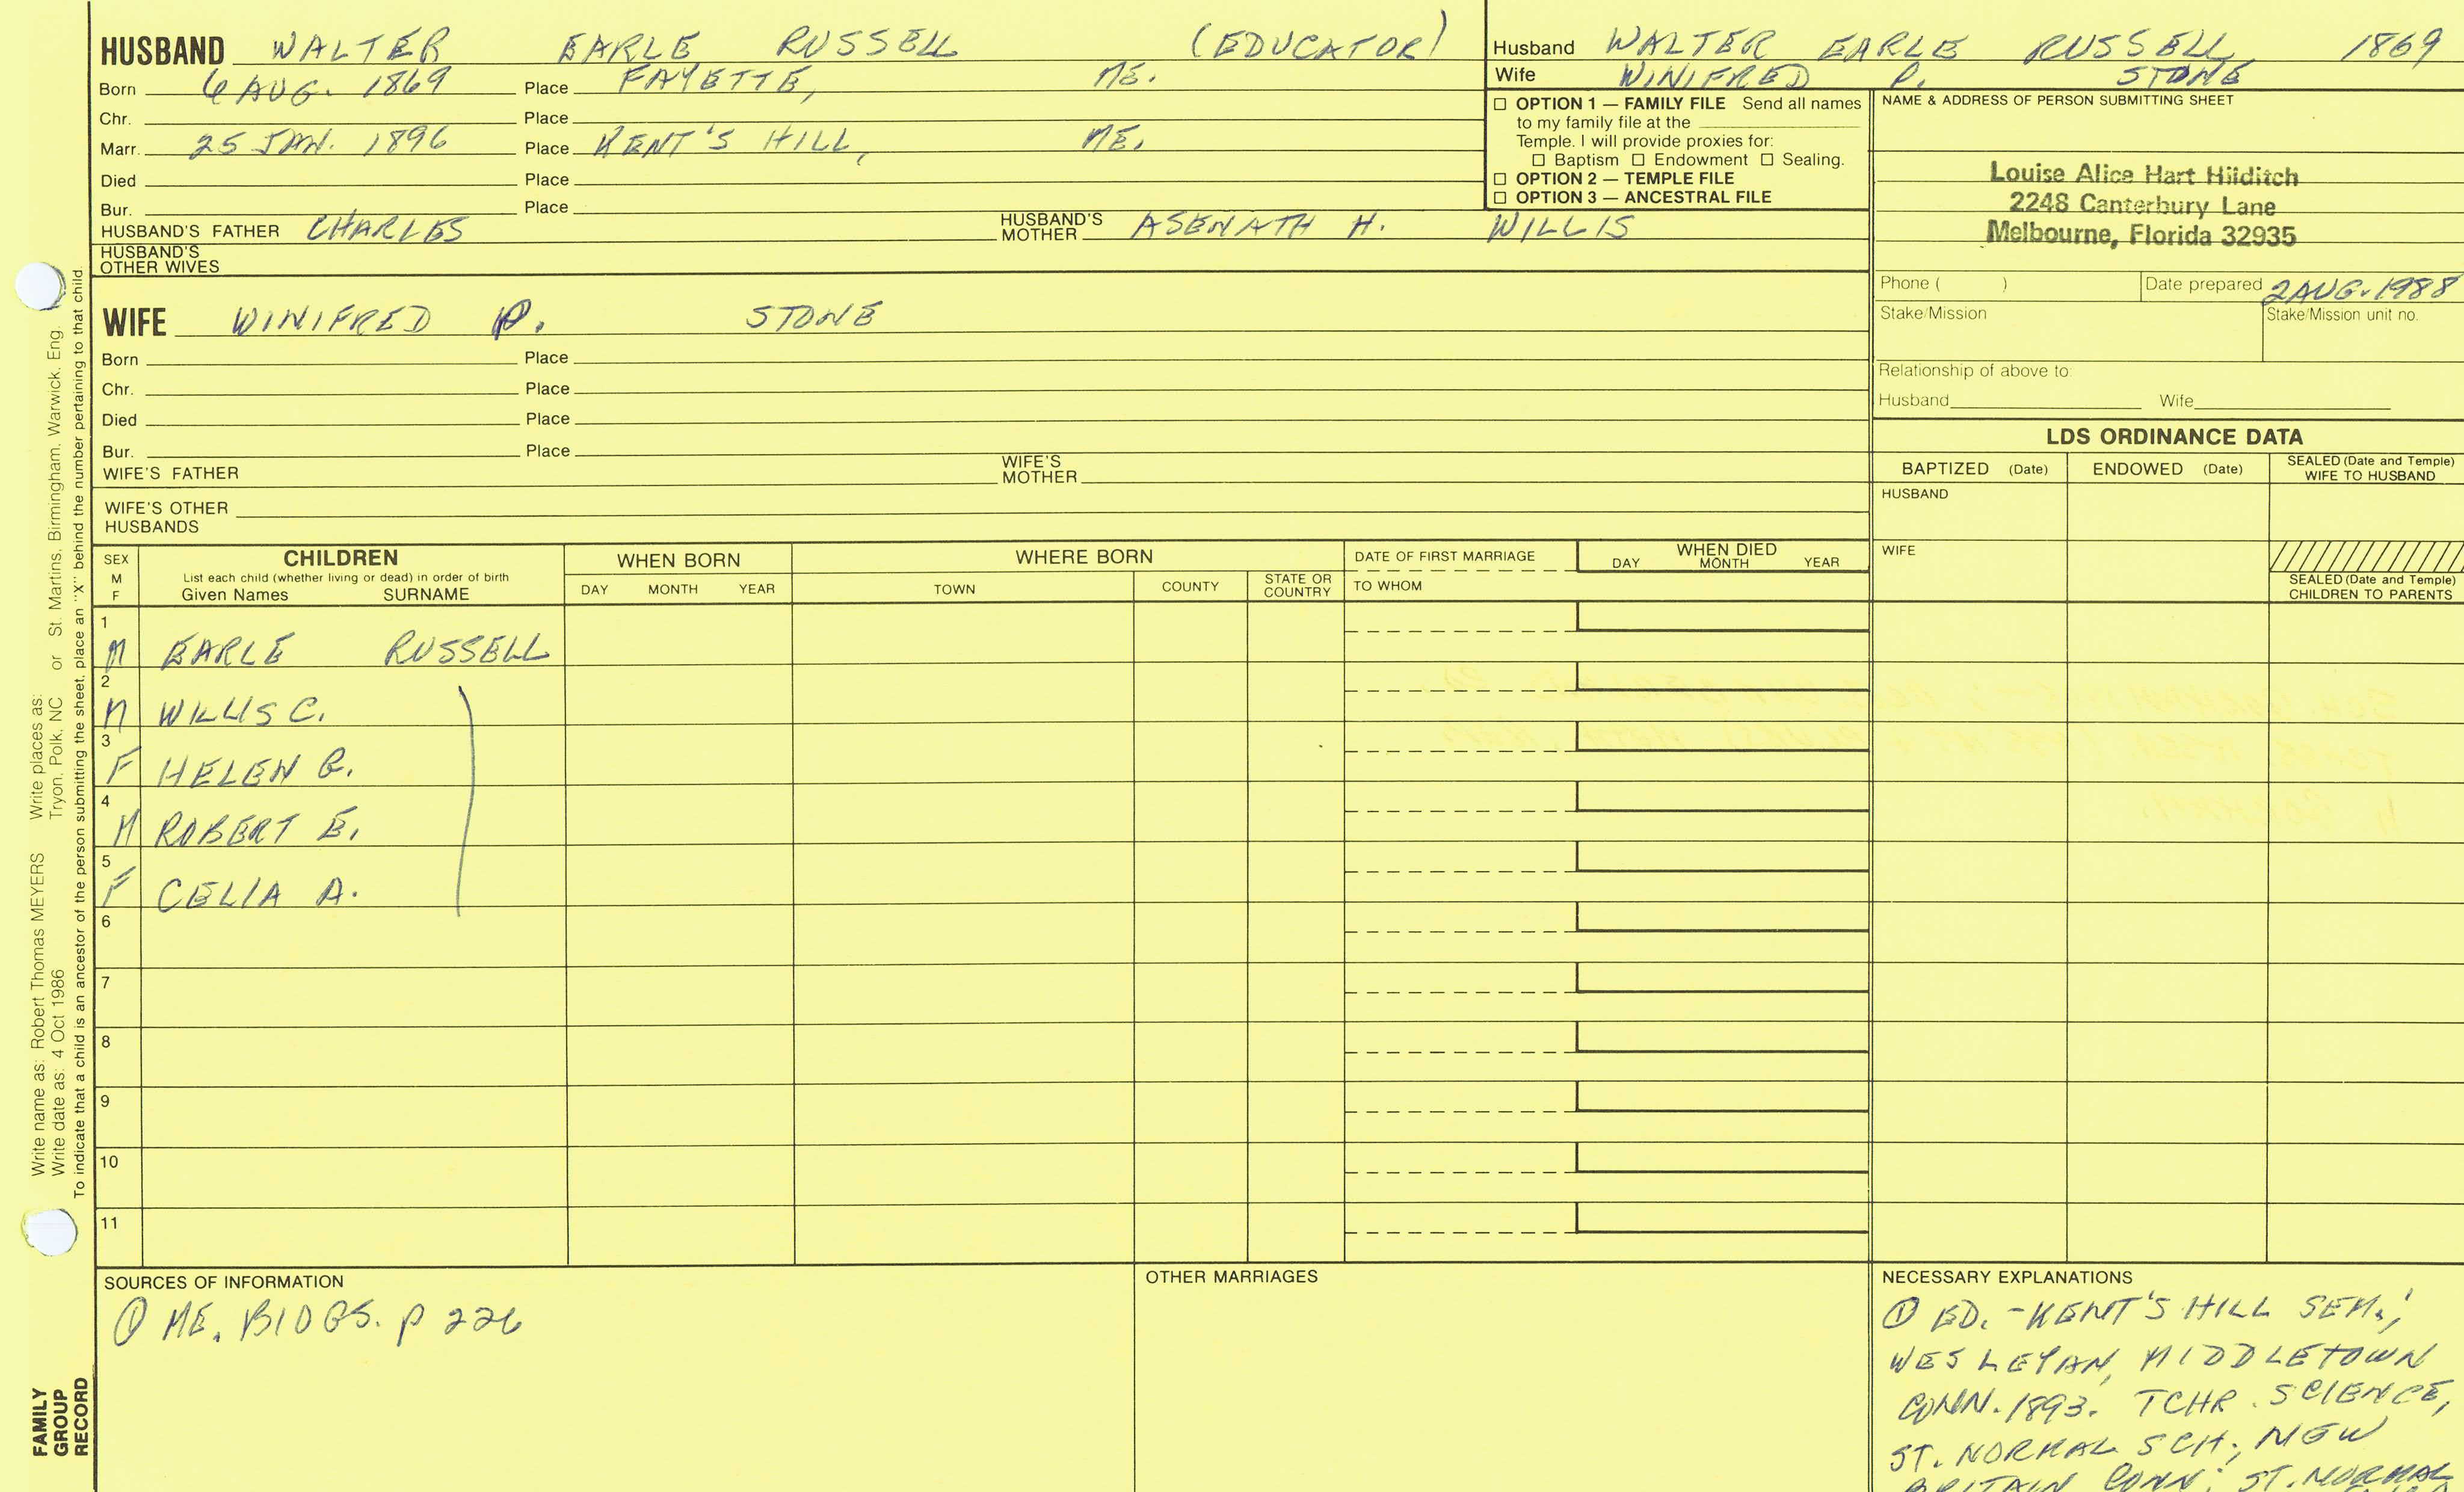 HUSBAND WALTER EARLE RUSSELL (EDUCATOR)
Born 6 AUG. 1869 Place FAYETTE, ME.
Chr. Place
Marr. 25 JAN. 1896 Place KENT'S HILL, ME.
Died Place
Bur. Place
HUSBAND'S FATHER CHARLES HUSBAND'S MOTHER ASENATH H. WILLIS
HUSBAND'S
OTHER WIVES
Husband WALTER EARLE RUSSELL 1869
Wife WINIFRED P. STONE
☐ OPTION 1 — FAMILY FILE Send all names
to my family file at the
Temple. I will provide proxies for:
☐ Baptism ☐ Endowment ☐ Sealing.
☐ OPTION 2 — TEMPLE FILE
☐ OPTION 3 — ANCESTRAL FILE
NAME & ADDRESS OF PERSON SUBMITTING SHEET
Louise Alice Hart Hilditch
2248 Canterbury Lane
Melbourne, Florida 32935
Phone ( ) Date prepared 2 AUG. 1988
Stake/Mission Stake/Mission unit no.
Relationship of above to:
Husband Wife
WIFE WINIFRED P. STONE
Born Place
Chr. Place
Died Place
Bur. Place
WIFE'S FATHER WIFE'S MOTHER
WIFE'S OTHER
HUSBANDS
LDS ORDINANCE DATA
BAPTIZED (Date) ENDOWED (Date) SEALED (Date and Temple) WIFE TO HUSBAND
HUSBAND
WIFE
SEALED (Date and Temple)
CHILDREN TO PARENTS
SEX M F
CHILDREN
List each child (whether living or dead) in order of birth
Given Names SURNAME
WHEN BORN
DAY MONTH YEAR
WHERE BORN
TOWN COUNTY STATE OR COUNTRY
DATE OF FIRST MARRIAGE
TO WHOM
WHEN DIED
DAY MONTH YEAR
1
M EARLE RUSSELL
2
M WILLIS C.
3
F HELEN B.
4
M ROBERT E.
5
F CELIA A.
6
7
8
9
10
11
SOURCES OF INFORMATION
① ME. BIOGS. p 226
OTHER MARRIAGES
NECESSARY EXPLANATIONS
① ED. - KENT'S HILL SEM.;
WESLEYAN, MIDDLETOWN
CONN. 1893. TCHR. SCIENCE,
ST. NORMAL SCH., NEW
BRITAIN CONN; ST. NORMAL
Write name as: Robert Thomas MEYERS Write places as:
Write date as: 4 Oct 1986 Tryon, Polk, NC or St. Martins, Birmingham, Warwick, Eng.
To indicate that a child is an ancestor of the person submitting the sheet, place an "X" behind the number pertaining to that child.
FAMILY
GROUP
RECORD